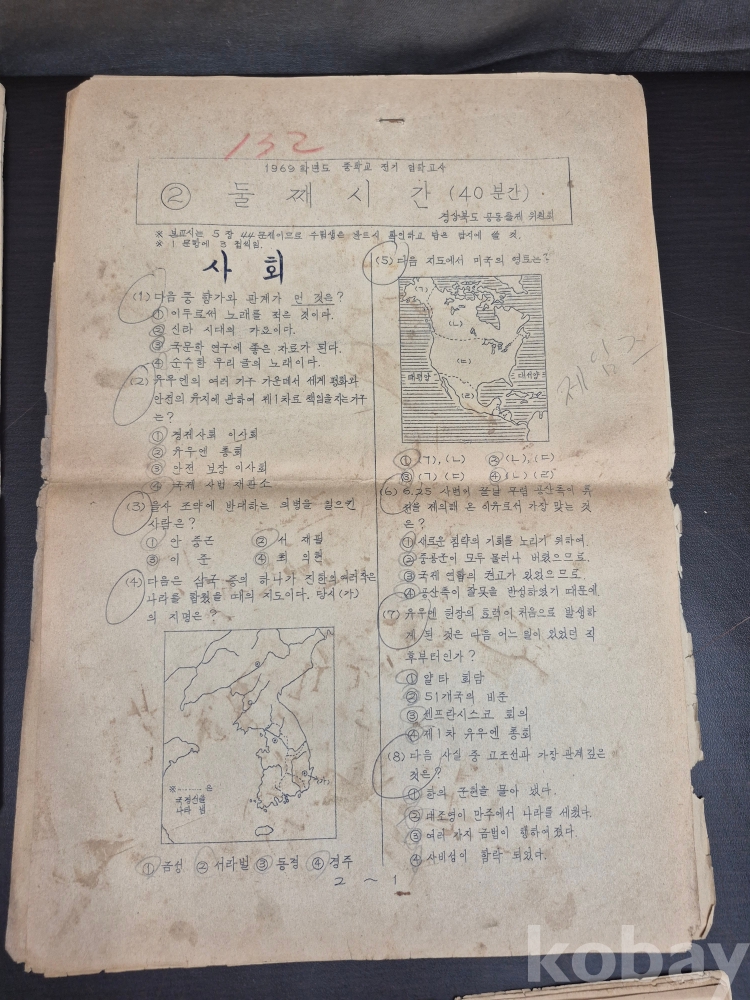 132
1969 학년도 중학교 전기 입학고사
② 둘째시간 (40 분간)
경상북도 공동출제 위원회
※ 본고사는 5 장 44 문제이므로 수험생은 반드시 확인하고 답은 답지에 쓸 것.
※ 1 문항에 3 점씩임.
사회
(1) 다음 중 향가와 관계가 먼 것은?
① 이두로써 노래를 적은 것이다.
② 신라 시대의 가요이다.
③ 국문학 연구에 좋은 자료가 된다.
④ 순수한 우리 글의 노래이다.
(2) 유우엔의 여러 기구 가운데서 세계 평화와
안전의 유지에 관하여 제1차로 책임을 지는 기구
는?
① 경제사회 이사회
② 유우엔 총회
③ 안전 보장 이사회
④ 국제 사법 재판소
(3) 을사 조약에 반대하는 의병을 일으킨
사람은?
① 안 중근 ② 서 재필
③ 이 준 ④ 최 익현
(4) 다음은 삼국 중의 하나가 진한의 여러 작은
나라를 합쳤을 때의 지도이다. 당시 (가)
의 지명은?
※ ------ 은
국경선을
나타 냄
① 금성 ② 서라벌 ③ 동경 ④ 경주
(5) 다음 지도에서 미국의 영토는?
(ㄱ)
(ㄴ)
(ㄷ)
태평양
대서양
(ㄹ)
① (ㄱ), (ㄴ) ② (ㄴ), (ㄷ)
③ (ㄱ) (ㄷ) ④ (ㄴ) (ㄹ)
(6) 6.25 사변이 끝날 무렵 공산측이 휴
전을 제의해 온 이유로서 가장 맞는 것
은?
① 새로운 침략의 기회를 노리기 위하여.
② 중공군이 모두 물러나 버렸으므로.
③ 국제 연합의 권고가 있었으므로.
④ 공산측이 잘못을 반성하였기 때문에.
(7) 유우엔 헌장의 효력이 처음으로 발생하
게 된 것은 다음 어느 일이 있었던 직
후부터인가?
① 얄타 회담
② 51개국의 비준
③ 샌프란시스코 회의
④ 제1차 유우엔 총회
(8) 다음 사실 중 고조선과 가장 관계 깊은
것은?
① 한의 군현을 몰아 냈다.
② 대조영이 만주에서 나라를 세웠다.
③ 여러 가지 금법이 행하여 졌다.
④ 사비성이 함락 되었다.
2 ~ 1
kobay